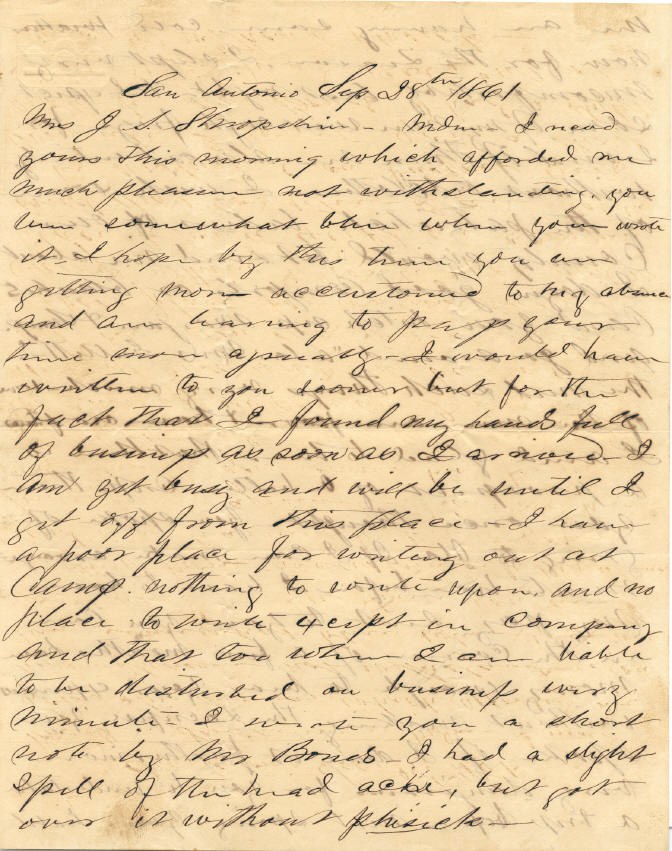 San Antonio Sep 28th 1861
Mrs J. S. Shropshire - Mdm - I recd
yours this morning which afforded me
much pleasure not withstanding, you
were somewhat blue when you wrote
it. I hope by this time you are
getting more accustomed to my absence
and are learning to pass your
time more agreeably - I would have
written to you sooner but for the
fact that I found my hands full
of business as soon as I arrived - I
am yet busy and will be until I
get off from this place - I have
a poor place for writing out at
Camp. nothing to write upon and no
place to write except in company
and that too when I am liable
to be disturbed on business every
minute I wrote you a short
note by Mr Bonds - I had a slight
spell of the head ache, but got
over it without phisick -